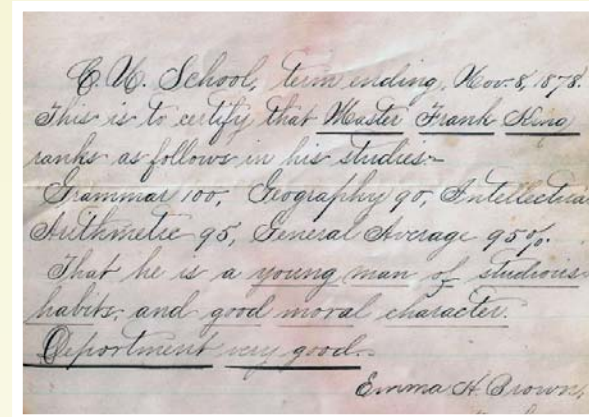 C. W. School, term ending, Nov. 8, 1878.
This is to certify that Master Frank King
ranks as follows in his studies:-
Grammar 100, Geography 90, Intellectual
Arithmetic 95, General Average 95%.
That he is a young man of studious
habits, and good moral character.
Deportment very good.
Emma H. Brown,